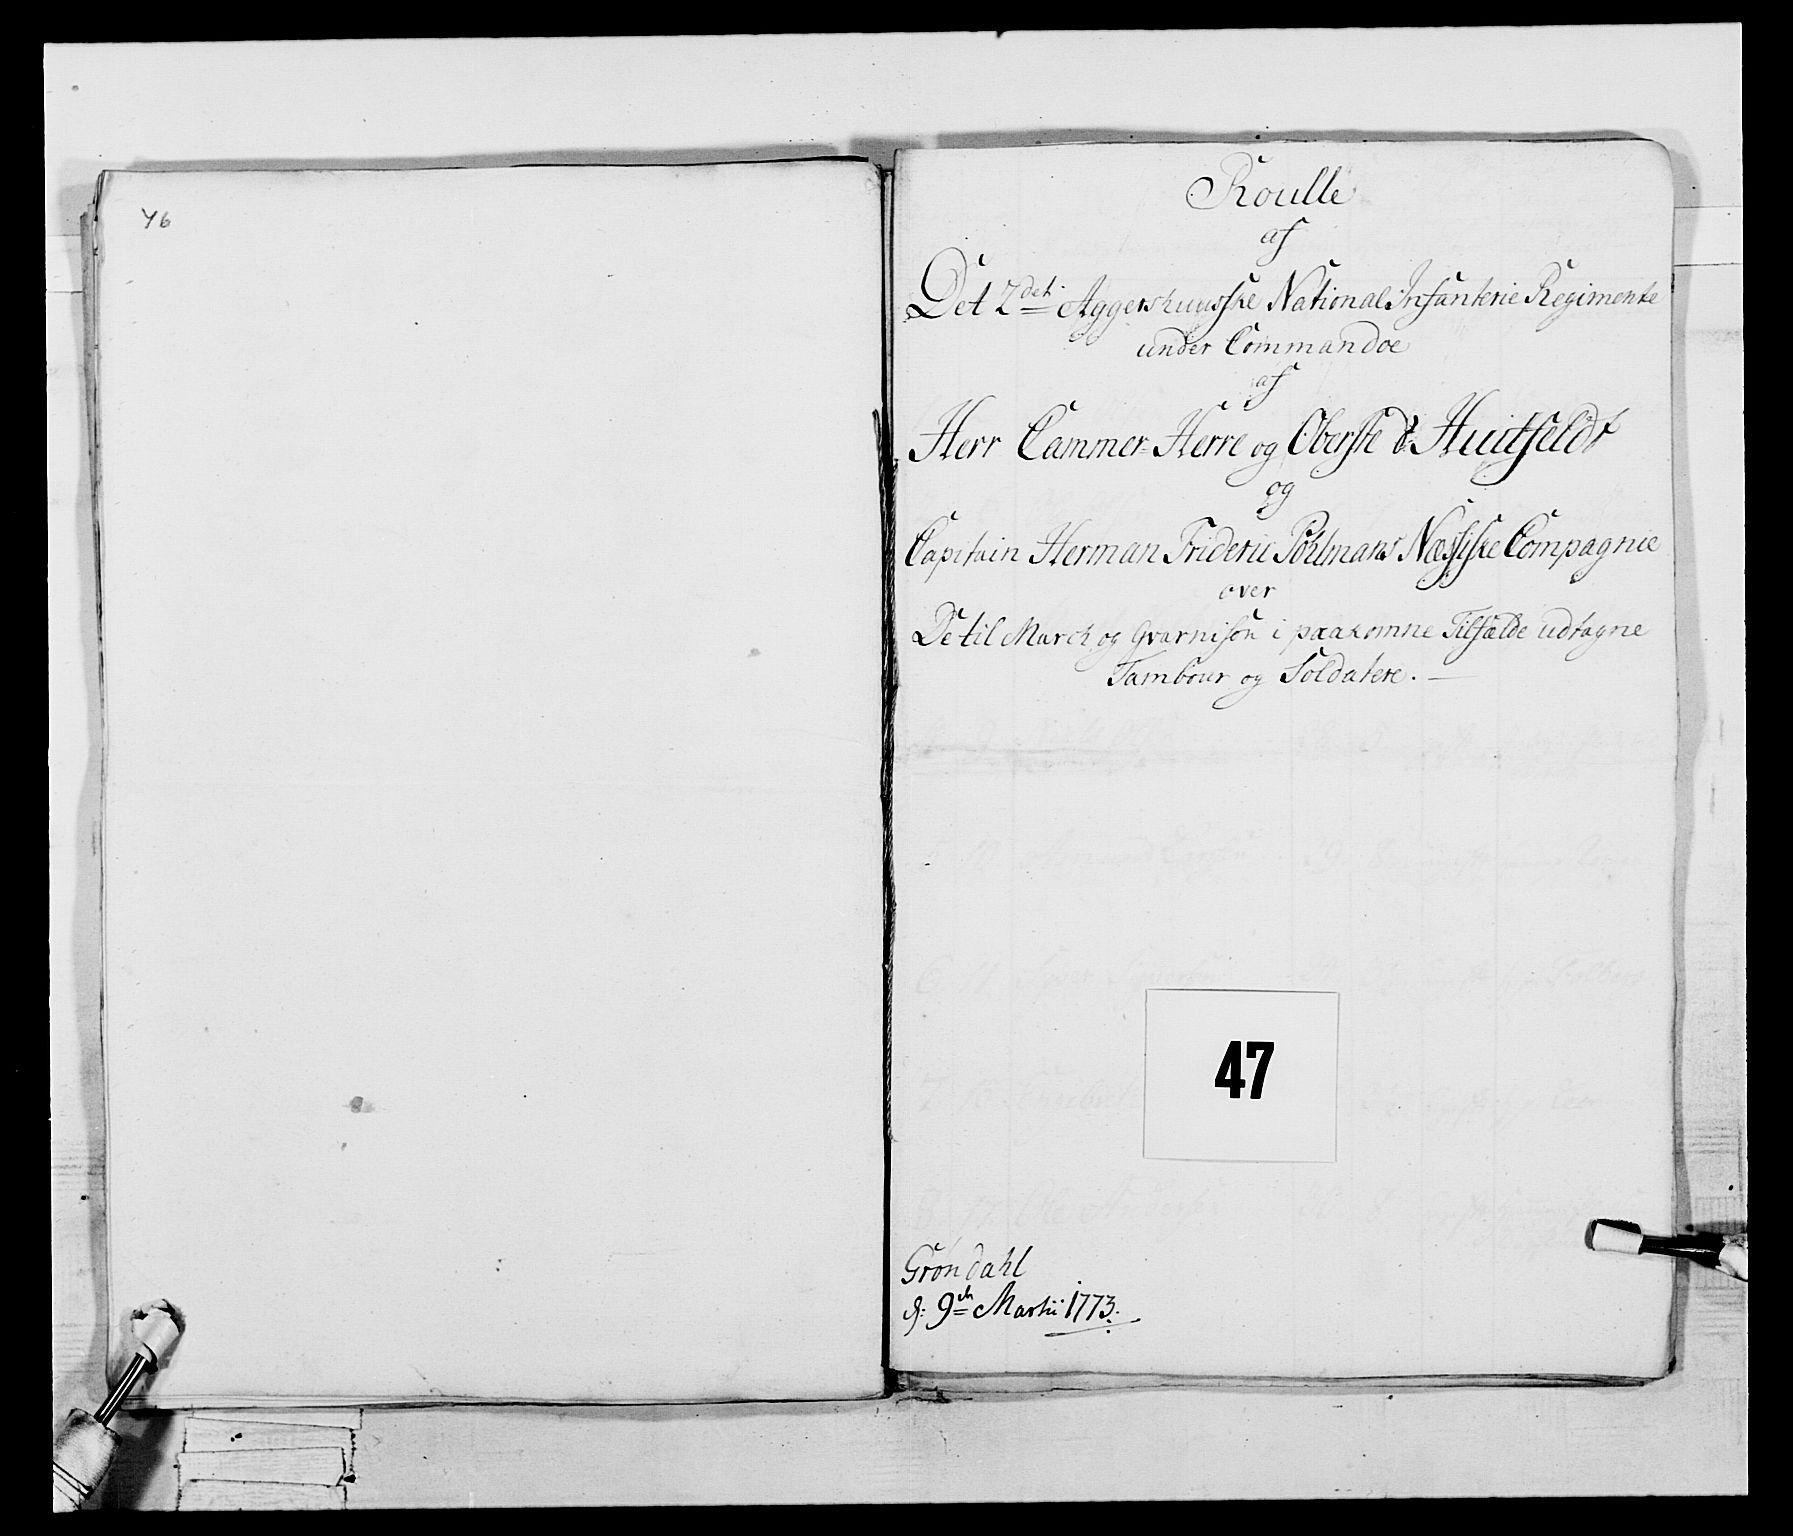 46
Roulle
af
Det 2det Aggershuusske National Infanterie Regimente
under Commandoe
af
Herr Cammer-Herre og Oberste d: Huitfeldt
og
Capitain Herman Frideric Pohlmans Næssiske Compagnie
over
De til March og Gvarnison i paakomne Tilfælde udtagne
Tambour og Soldatere. —
47
Grøndahl
d: 9de Martii 1773.